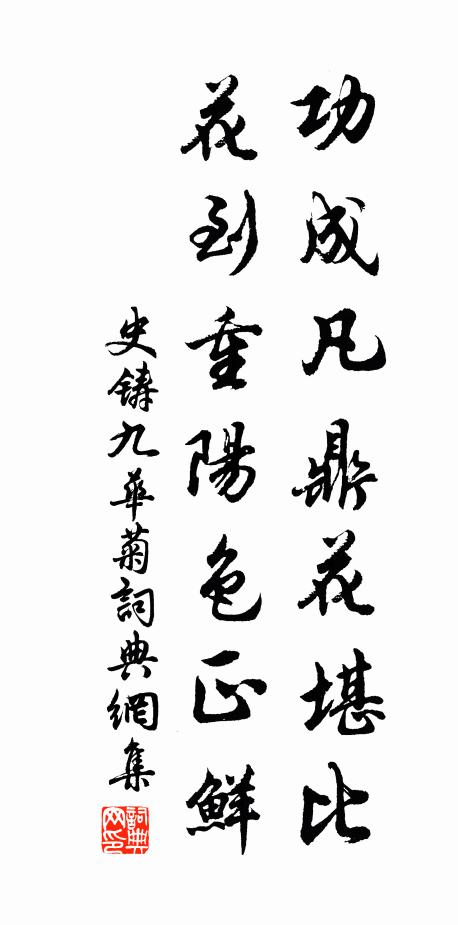 功成凡鼎花堪比
花到重陽色正鮮
史鑄九華菊詞典網集
詞典網印